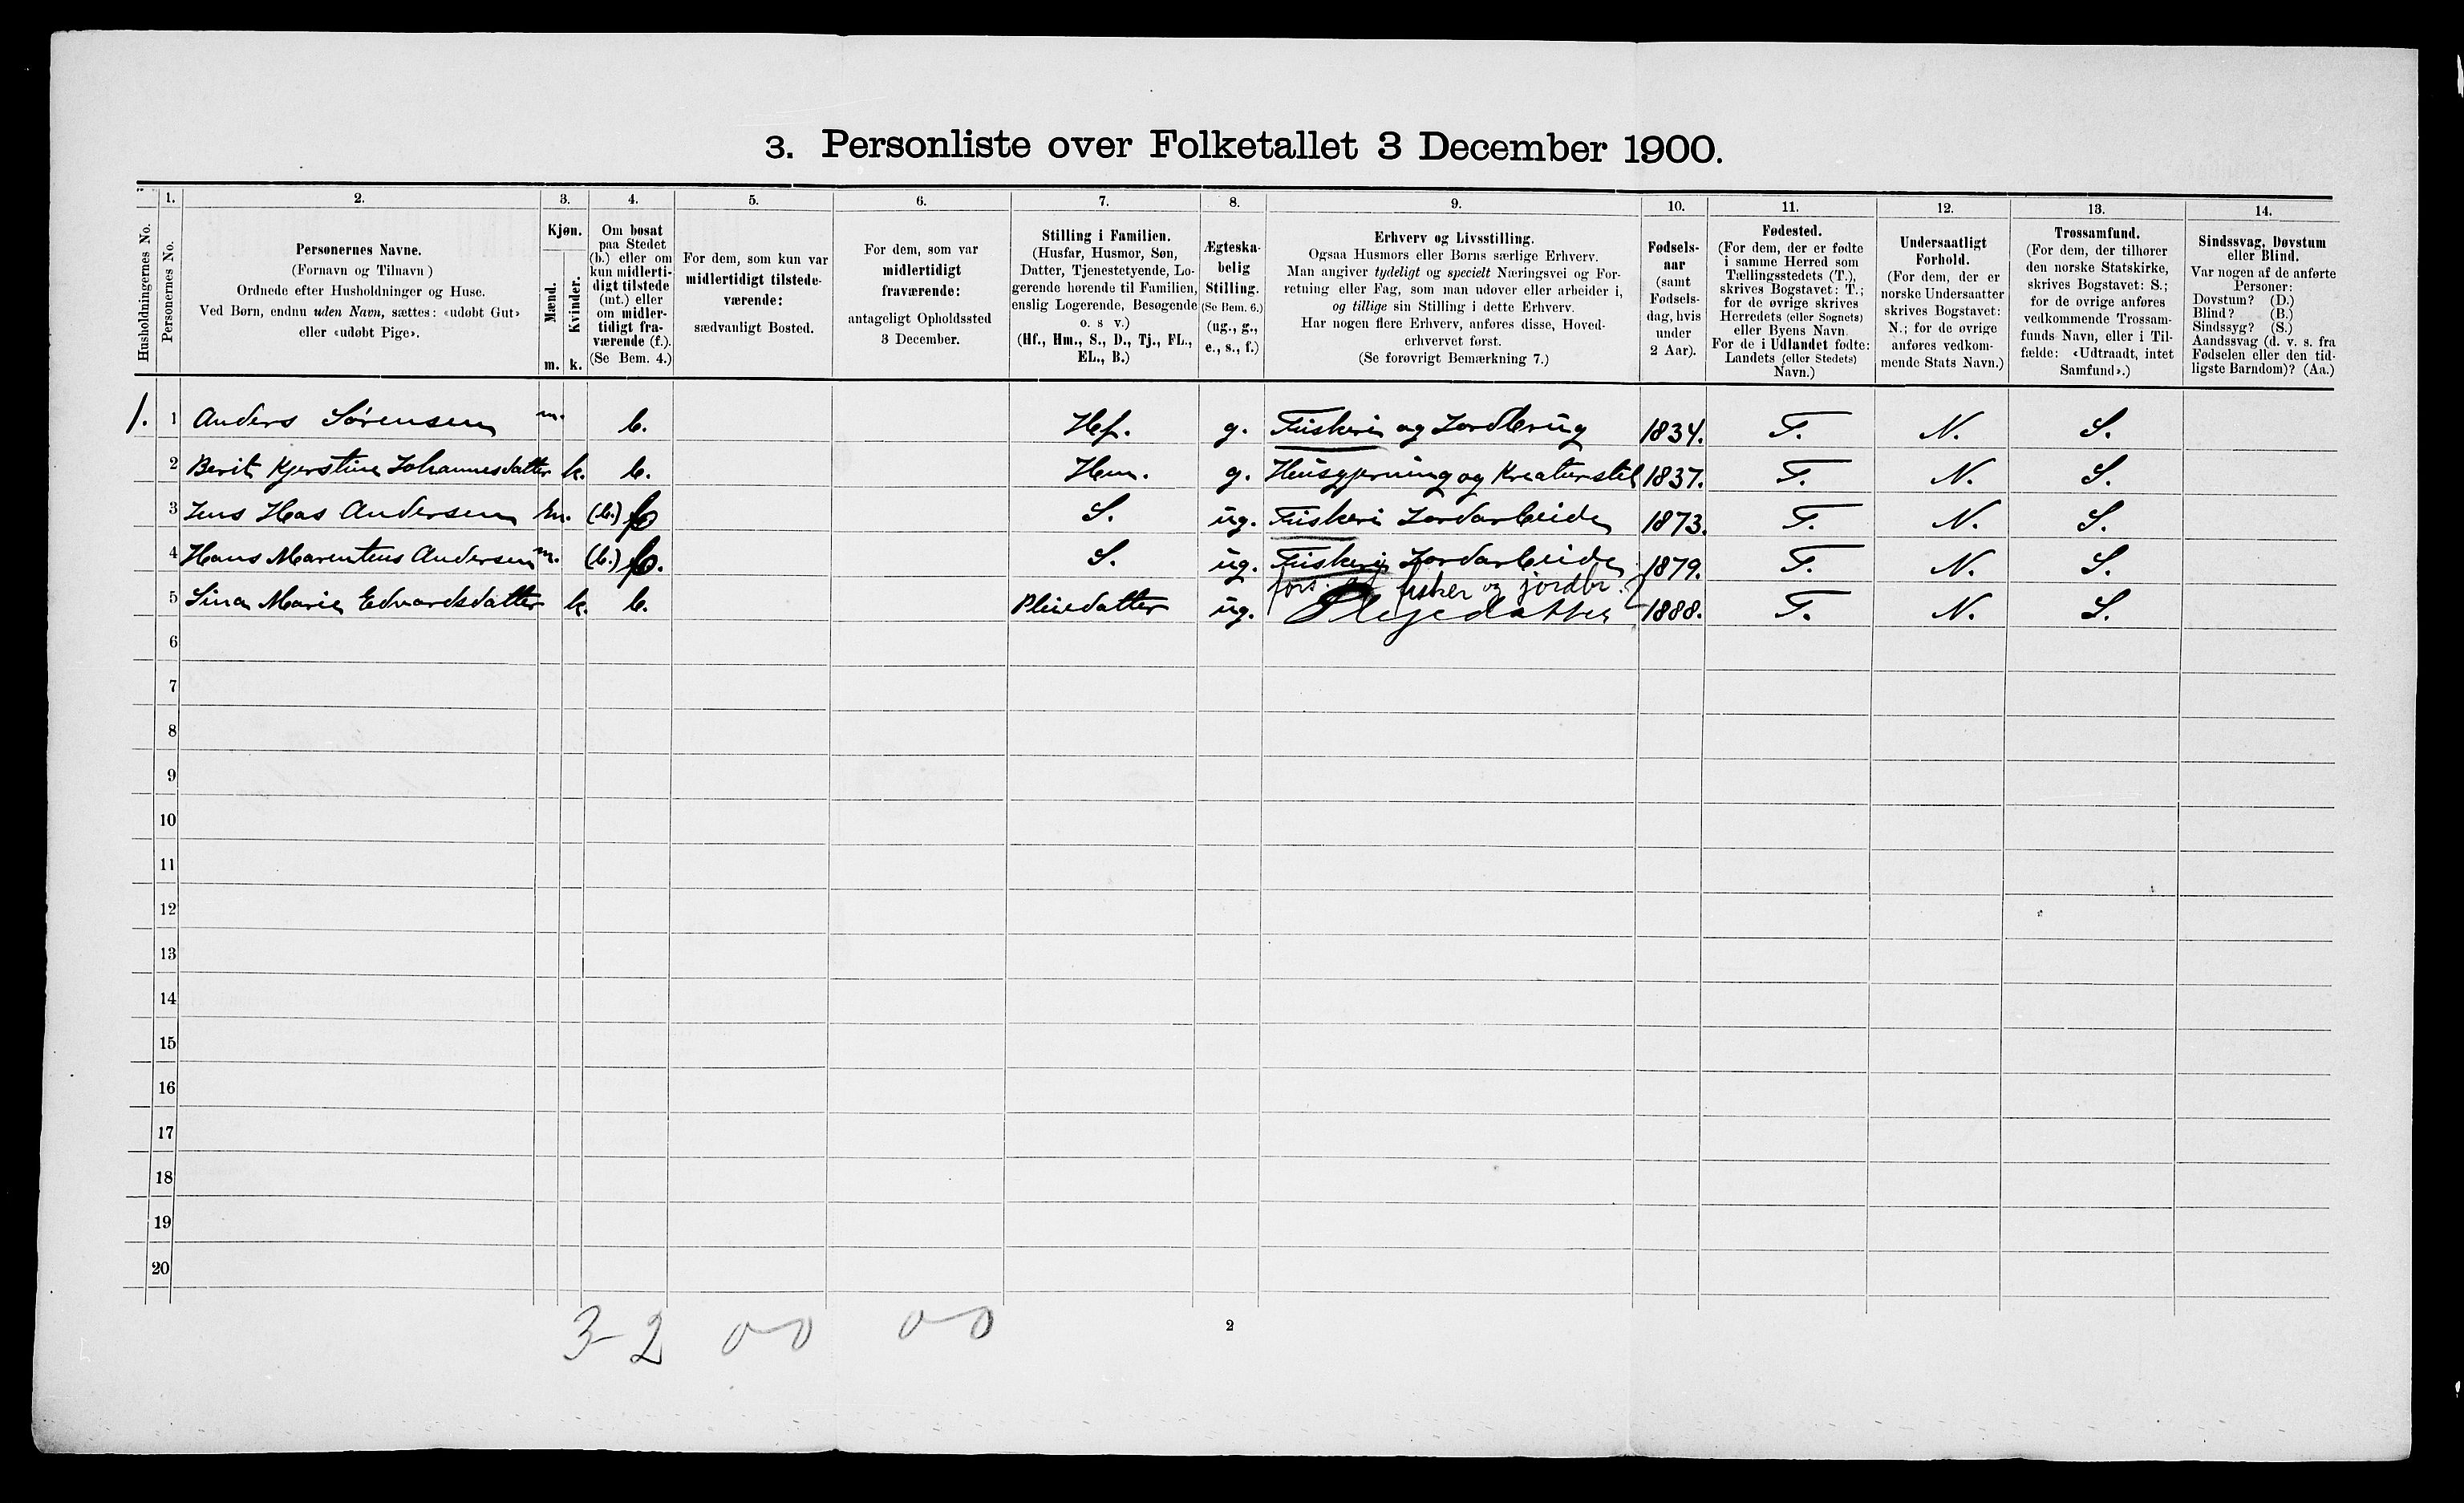 3. Personliste over Folketallet 3 December 1900.
1. 2. 3. 4. 5. 6. 7. 8. 9. 10. 11. 12. 13. 14.
Husholdningernes No.
Personernes No.
Personernes Navne.
(Fornavn og Tilnavn)
Ordnede efter Husholdninger og Huse.
Ved Børn, endnu uden Navn, sættes: «udøbt Gut»
eller «udøbt Pige».
Kjøn.
Mænd.
Kvinder.
m. k.
Om bosat
paa Stedet
(b.) eller om
kun midlerti-
digt tilstede
(mt.) eller
om midler-
tidigt fra-
værende (f.).
(Se Bem. 4.)
For dem, som kun var
midlertidigt tilstede-
værende:
sædvanligt Bosted.
For dem, som var
midlertidigt
fraværende:
antageligt Opholdssted
3 December.
Stilling i Familien.
(Husfar, Husmor, Søn,
Datter, Tjenestetyende, Lo-
gerende hørende til Familien,
enslig Logerende, Besøgende
o. s v.)
(Hf., Hm., S., D., Tj., FL.,
EL., B.)
Ægteska-
belig
Stilling.
(Se Bem. 6.)
(ug., g.,
e., s., f.)
Erhverv og Livsstilling.
Ogsaa Husmors eller Børns særlige Erhverv.
Man angiver tydeligt og specielt Næringsvei og For-
retning eller Fag, som man udøver eller arbeider i,
og tillige sin Stilling i dette Erhverv.
Har nogen flere Erhverv, anføres disse, Hoved-
erhvervet først.
(Se forøvrigt Bemærkning 7.)
Fødsels-
aar
(samt
Fødsels-
dag, hvis
under
2 Aar).
Fødested.
(For dem, der er fødte
i samme Herred som
Tællingsstedets (T.),
skrives Bogstavet: T.;
for de øvrige skrives
Herredets (eller Sognets)
eller Byens Navn.
For de i Udlandet fødte:
Landets (eller Stedets)
Navn.)
Undersaatligt
Forhold.
(For dem, der er
norske Undersaatter
skrives Bogstavet:
N.; for de øvrige
anføres vedkom-
mende Stats Navn.)
Trossamfund.
(For dem, der tilhører
den norske Statskirke,
skrives Bogstavet: S.;
for de øvrige anføres
vedkommende Trossam-
funds Navn, eller i Til-
fælde: «Udtraadt, intet
Samfund».)
Sindssvag, Døvstum
eller Blind.
Var nogen af de anførte
Personer:
Døvstum? (D.)
Blind? (B.)
Sindssyg? (S.)
Aandssvag (d. v. s. fra
Fødselen eller den tid-
ligste Barndom)? (Aa.)
1. 1 Anders Sörensen m. b. Hf. g. Fiskeri og Jordbrug 1834. T. N. S.
2 Berit Kjerstine Johannesdatter k. b. Hm. g. Husgjerning og Kreaturstel 1837. T. N. S.
3 Jens Has Andersen m. (b.) S. ug. Fiskeri Jordarbeide 1873. T. N. S.
4 Hans Marentius Andersen m. (b.) S. ug. Fiskeri Jordarbeide 1879. T. N. S.
fors. af fisker og jordbr.
5 Lina Marie Edvardsdatter k. b. Pleiedatter ug. Plejedatter 1888. T. N. S.
6
7
8
9
10
11
12
13
14
15
16
17
18
19
20
3-2 0-0 0-0
2